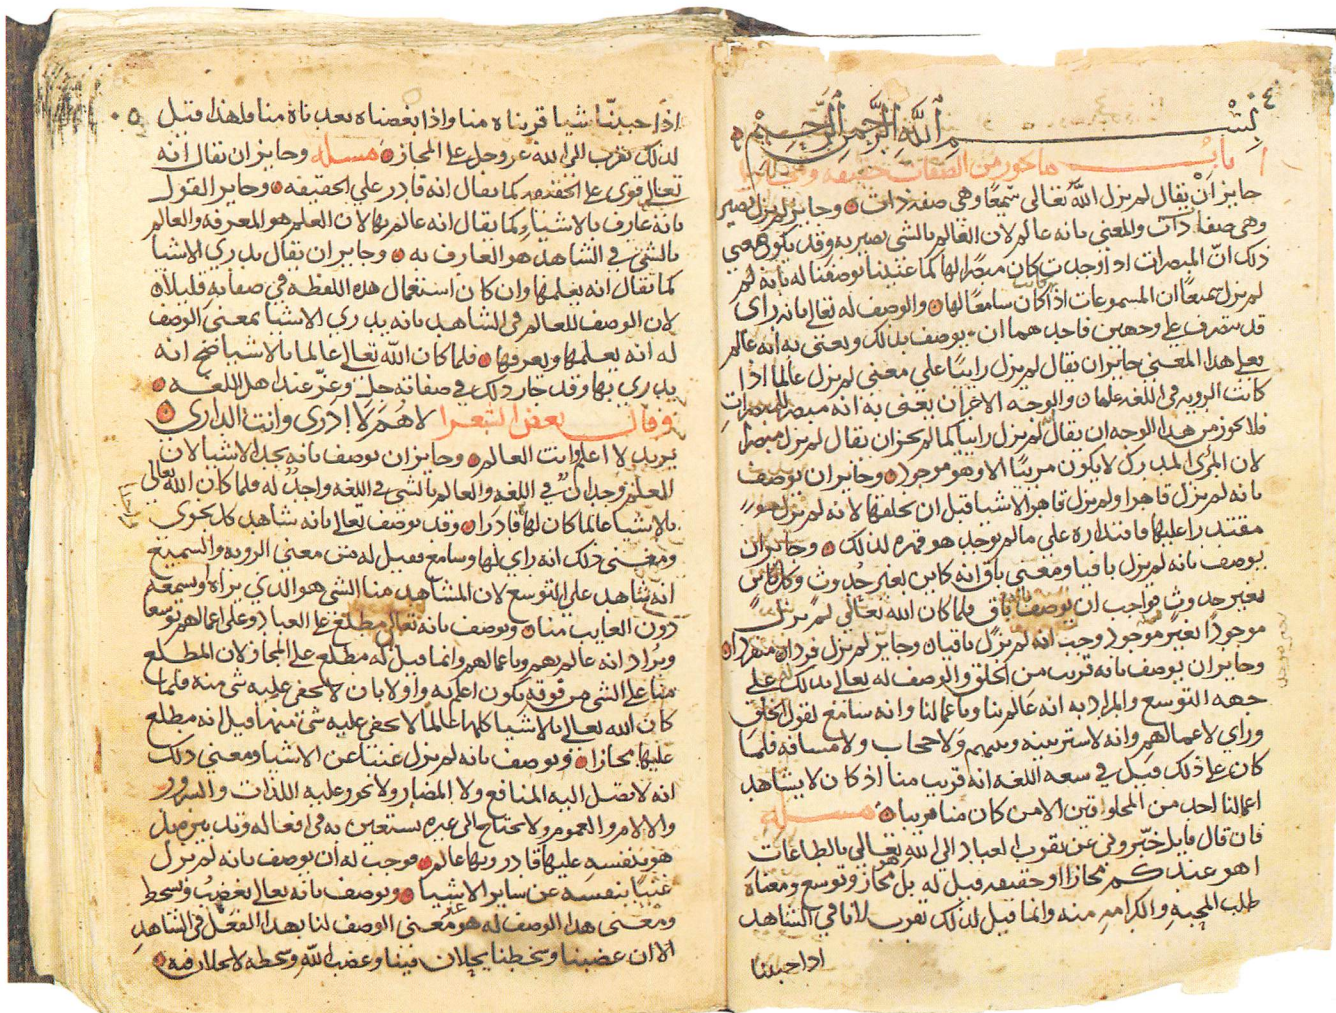 ٤
بسم الله الرحمن الرحيم
باب ما يجوز من الصفات حقيقه وفي
جايز أن يقال لم يزل الله تعالى سميعًا وهي صفه ذات وجايز لم يزل بصير
وهي صفة ذات والمعنى بانه عالم لان العالم بالشي بصير به وقد يكون معنى
ذلك انّ المبصرات اذا وجدت كان مبصرا لها كما عنينا بوصفنا له بانه لم
لم يزل سميعًا ان المسموعات اذا كانت كان سامعًا لها والوصف له تعالى بانه راى
قد يتصرف على وجهين فاحدهما ان يوصف بذلك ويعنى به أنه عالم
فعلى هذا المعنى جايز ان يقال لم يزل رايئًا على معنى لم يزل عالما اذا
كانت الرويه في اللغه علما والوجه الاخر ان يعنى به انه مبصر للمبصرات
فلا يجوز من هذا الوجه ان يقال لم يزل رايئا كما لم يجز ان يقال لم يزل مبصرا
لان المرئ المدرك لا يكون مرييًا الا وهو موجود وجايز ان يوصف
بانه لم يزل قاهرا ولم يزل قاهر الاشيا قبل ان يخلقها لانه لم يزل
مقتدرا عليها فاقتداره على ما لم يوجد هو قهره لذلك وجايز ان
يوصف بانه لم يزل باقيا ومعنى باق انه كاين بغير حُدوث وكل كاين
بغير حدوث فواجب ان يوصف بانه باق فلما كان الله تعالى لم يزل
موجودًا بغير موجود وجب انه لم يزل باقيا وجايز لم يزل فردا منفردا
وجايز ان يوصف بانه قريب من الخلق والوصف له تعالى بذلك على
جهه التوسع والمراد به انه عالم بنا وباعمالنا وانه سامع لقول الخلق
وراي لاعمالهم وانه لا ستر بينه وبينهم ولا حجاب ولا مسافه فلما
كان على ذلك قيل في سعه اللغه انه قريب منا اذ كان لا يشاهد
اعمالنا احد من المخلوقين الا من كان منا قريبا مسله
فان قال قايل خبّروني عن تقرب العباد الى الله تعالى بالطاعات
اهو عندكم مجازا او حقيقه قيل له بل هو مجاز وتوسع ومعناه
طلب المحبه والكرامه منه وانما قيل لذلك تقرب لانا في الشاهد
اذا احببنا
٥
اذا احببنا شيا قربناه منا واذا بغضناه بعدناه منا فلهذا قيل
لذلك تقرب الى الله عز وجل على المجاز مسله وجايز ان يقال انه
تعالى قوى على الحقيقه كما يقال انه قادر على الحقيقه وجايز القول
بانه عارف بالاشياء كما يقال انه عالم بها لان العلم هو المعرفه والعالم
بالشى في الشاهد هو العارف به وجايز ان يقال يدري الاشيا
كما يقال انه يعلمها وان كان استعمال هذه اللفظه في صفاته قليلا
لان الوصف للعالم في الشاهد بانه يدري الاشيا بمعنى الوصف
له انه يعلمها ويعرفها فلما كان الله تعالى عالما بالاشيا صح انه
يدري بها وقد جاز ذلك في صفاته جل وعز عند اهل اللغه
وقال بعض الشعرا لاهُمّ لا ادرى وانت الدارى
يريد لا اعلم وانت العالم وجايز ان يوصف بانه يجد الاشيا لان
المعلم وجدان في اللغه والعالم بالشى في اللغه واجد له فلما كان الله تعالى
بالاشيا عالما كان لها واجدا وقد يوصف تعالى بانه شاهد كل نجوى
ومعنى ذلك انه راي لها وسامع فقيل له من معنى الرويه والسميع
انه شاهد على التوسع لان المشاهد منا الشى هو الذي يراه ويسمعه
دون الغايب منا ويوصف بانه تعالى مطلع على العباد وعلى اعمالهم توسعا
ويراد انه عالم بهم وباعمالهم وانما قيل له مطلع على المجاز لان المطلع
منا على الشى من فوقه يكون اعلم به واولا بان لا يخفى عليه شى منه فلما
كان الله تعالى بالاشيا كلها عالما لا يخفى عليه شى منها قيل انه مطلع
عليها مجازا ويوصف بانه لم يزل غنيا عن الاشيا ومعنى ذلك
انه لا تصل اليه المنافع ولا المضار ولا تجوز عليه اللذات والسرور
والالام والغموم ولا يحتاج الى غيره يستعين به في افعاله وتدبيره بل
هو بنفسه عليها قادر وبها عالم فوجب له أن يوصف بانه لم يزل
غنيًا بنفسه عن ساير الاشيا ويوصف بانه تعالى يغضب ويسخط
ومعنى هذا الوصف له هو معنى الوصف لنا بهذا الفعل في الشاهد
الا ان غضبنا وسخطنا يحلان فينا وغضب الله وسخطه لا يحلان فيه